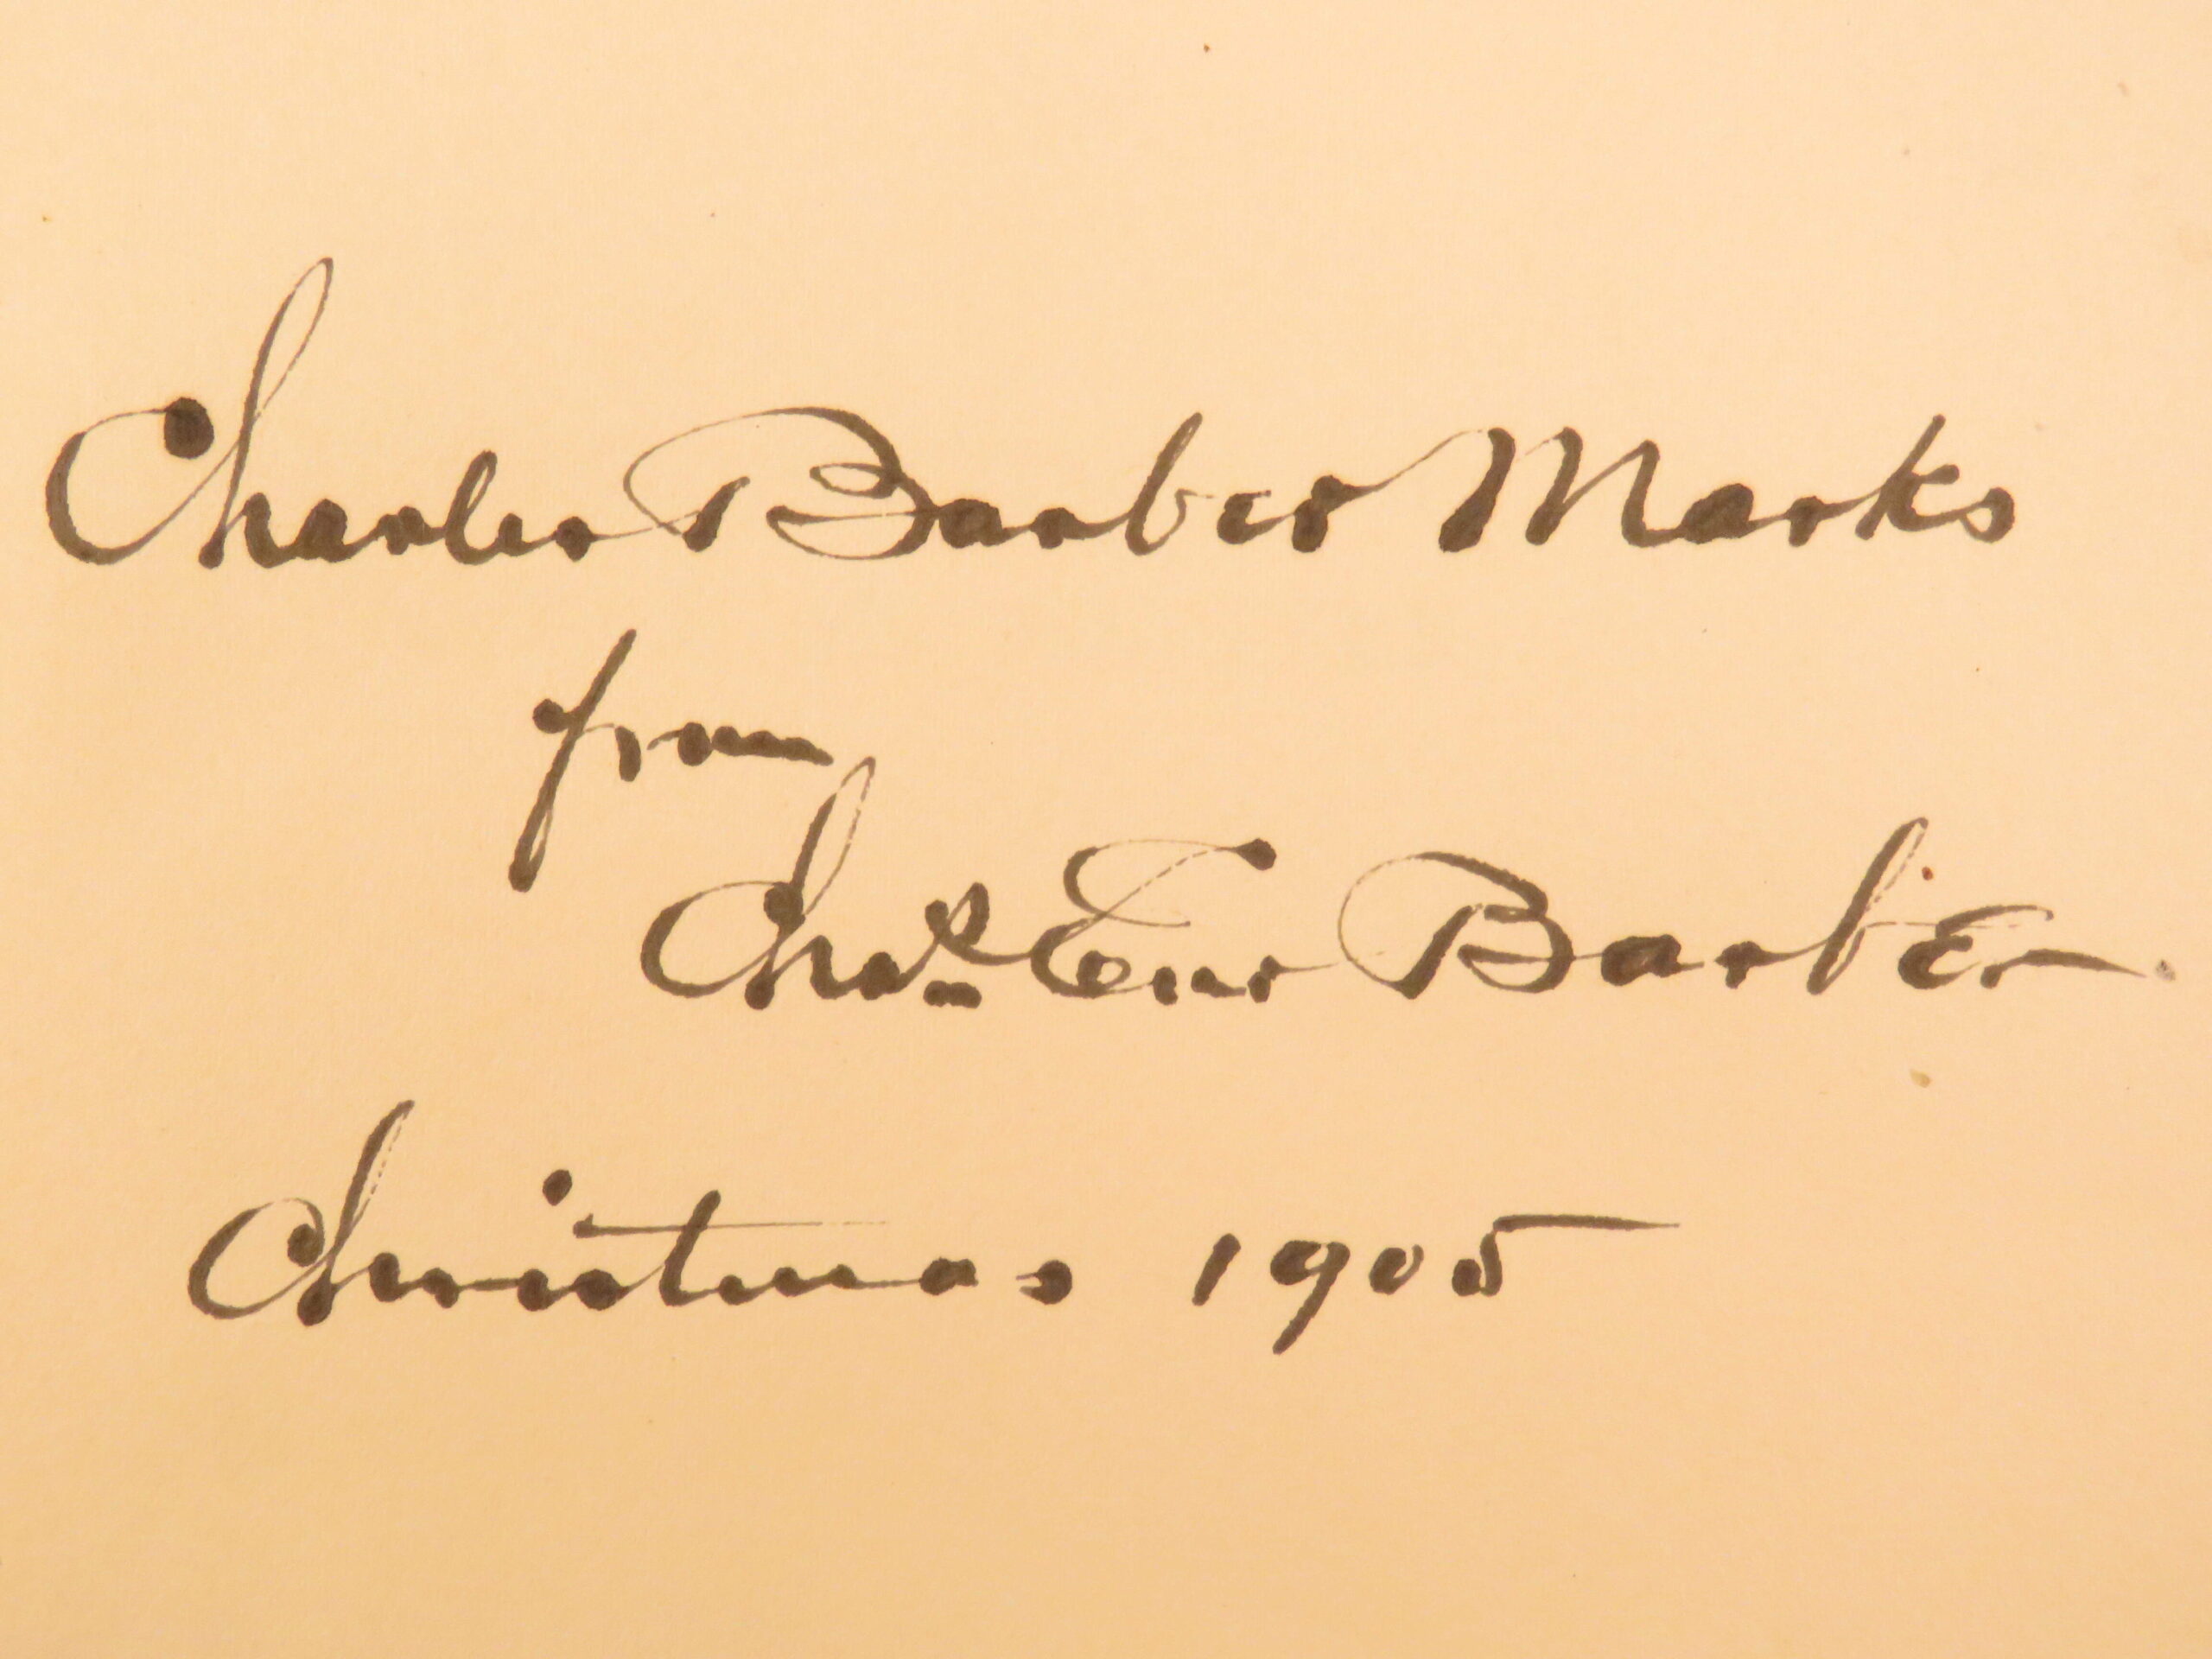 Charles Barber Marks
from
Chas Enos Barber
Christmas 1905